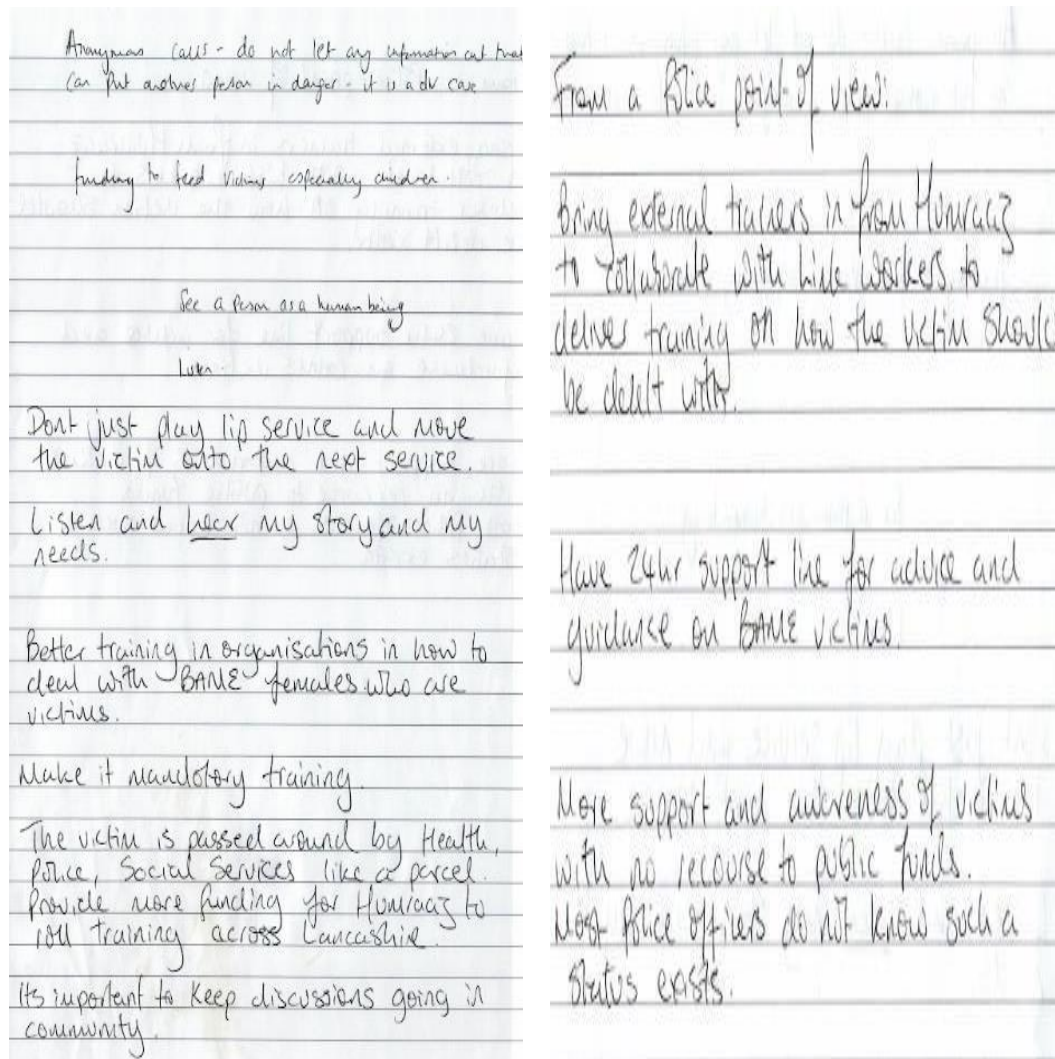 Anonymous calls - do not let any information out that
can put another person in danger - it is a dv case
funding to feed victims especially children.
See a person as a human being
Listen
Dont just play lip service and move
the victim onto the next service.
Listen and hear my story and my
needs.
Better training in organisations in how to
deal with BAME females who are
victims.
Make it mandotory training.
The victim is passed around by Health,
Police, Social Services like a parcel.
Provide more funding for Humraaz to
roll training across Lancashire.
Its important to keep discussions going in
community.
From a Police point of view:
Bring external trainers in from Humraaz
to collaborate with link workers to
deliver training on how the victim should
be dealt with.
Have 24hr support line for advice and
guidance on BAME victims.
More support and awareness of victims
with no recourse to public funds.
Most Police officers do not know such a
status exists.